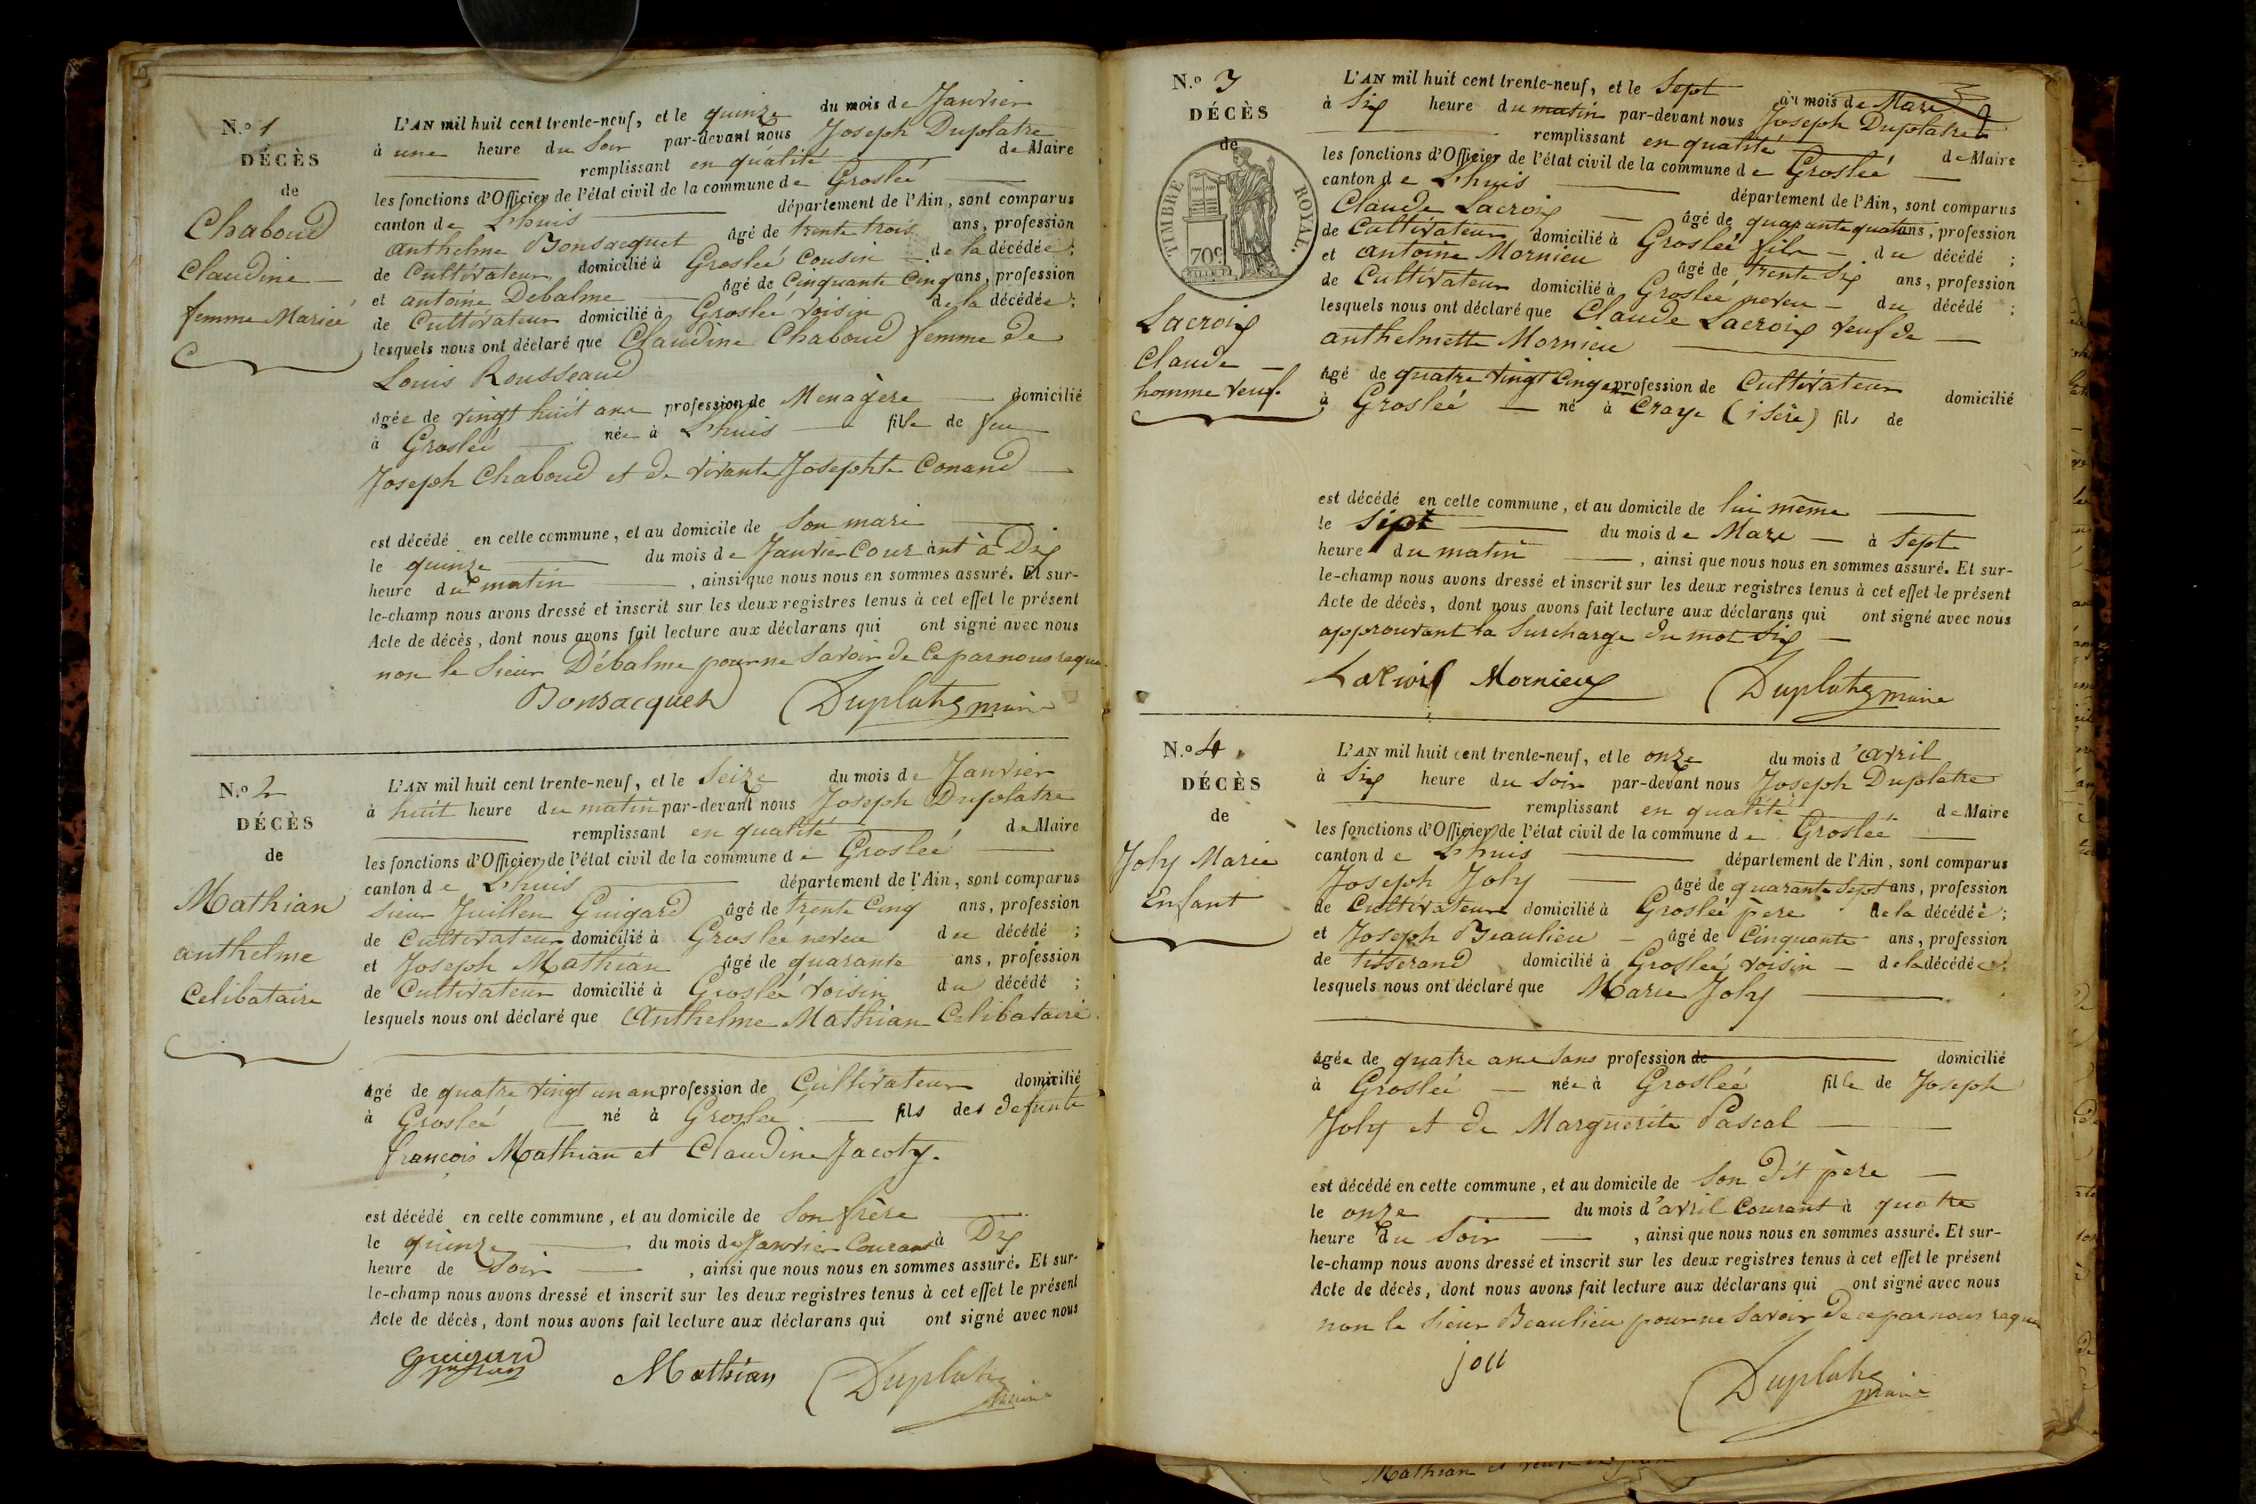 N.º 1
DÉCÈS
de
Chaboud
Claudine
femme Mariée
L'AN mil huit cent trente-neuf, et le quinze du mois de Janvier
à une heure du Soir par-devant nous Joseph Duplatre
remplissant en qualité de Maire
les fonctions d'Officier de l'état civil de la commune de Groslée
canton de L'huis département de l'Ain, sont comparus
anthelme Bonsacquet âgé de trente trois ans, profession
de Cultivateur domicilié à Groslée Cousin de la décédée ;
et antoine Debalme âgé de Cinquante Cinq ans, profession
de Cultivateur domicilié à Groslée voisin de la décédée ;
lesquels nous ont déclaré que Claudine Chaboud femme de
Louis Rousseaud
agée de vingt huit ans profession de Menagère domicilié
à Groslée née à L'huis fille de feu
Joseph Chaboud et de vivante Josephte Conand
est décédé en cette commune, et au domicile de Son mari
le quinze du mois de Janvier Courant à Dix
heure du matin , ainsi que nous nous en sommes assuré. Et sur-
le-champ nous avons dressé et inscrit sur les deux registres tenus à cet effet le présent
Acte de décès, dont nous avons fait lecture aux déclarans qui ont signé avec nous
non le Sieur Débalme pour ne Savoir de Ce par nous requis
Bonsacquet Duplatre maire
N.º 2
DÉCÈS
de
Mathian
anthelme
Celibataire
L'AN mil huit cent trente-neuf, et le Seize du mois de Janvier
à huit heure du matin par-devant nous Joseph Duplatre
remplissant en qualité de Maire
les fonctions d'Officier de l'état civil de la commune de Groslée
canton de L'huis département de l'Ain, sont comparus
Sieur Juillen Guigard âgé de trente Cinq ans, profession
de Cultivateur domicilié à Groslée neveu du décédé ;
et Joseph Mathian âgé de quarante ans, profession
de Cultivateur domicilié à Groslée voisin du décédé ;
lesquels nous ont déclaré que Anthelme Mathian Celibataire
agé de quatre vingt un an profession de Cultivateur domicilié
à Groslée né à Groslée fils des defunts
françois Mathian et Claudine Jacoty.
est décédé en cette commune, et au domicile de Son frère
le quinze du mois de Janvier Courant à Dix
heure de Soir , ainsi que nous nous en sommes assuré. Et sur-
le-champ nous avons dressé et inscrit sur les deux registres tenus à cet effet le présent
Acte de décès, dont nous avons fait lecture aux déclarans qui ont signé avec nous
guigard Mathian Duplatre maire
N.º 3
DÉCÈS
de
TIMBRE ROYAL.
70c
Lacroix
Claude
homme veuf.
L'AN mil huit cent trente-neuf, et le Sept du mois de Mars
à Six heure du matin par-devant nous Joseph Duplatre
remplissant en qualité de Maire
les fonctions d'Officier de l'état civil de la commune de Groslée
canton de L'huis département de l'Ain, sont comparus
Claude Lacroix âgé de quarante quatre ans, profession
de Cultivateur domicilié à Groslée fils du décédé ;
et antoine Mornieu âgé de trente Six ans, profession
de Cultivateur domicilié à Groslée neveu du décédé ;
lesquels nous ont déclaré que Claude Lacroix veuf de
anthelmette Mornieu
agé de quatre vingt Cinq ans profession de Cultivateur domicilié
à Groslée né à Craye (isère) fils de
est décédé en cette commune, et au domicile de lui même
le Sept du mois de Mars à Sept
heure du matin , ainsi que nous nous en sommes assuré. Et sur-
le-champ nous avons dressé et inscrit sur les deux registres tenus à cet effet le présent
Acte de décès, dont nous avons fait lecture aux déclarans qui ont signé avec nous
approuvant la Surcharge du mot Six
Mornieu Duplatre maire
N.º 4
DÉCÈS
de
Joly Marie
Enfant
L'AN mil huit cent trente-neuf, et le onze du mois d'avril
à Six heure du Soir par-devant nous Joseph Duplatre
remplissant en qualité de Maire
les fonctions d'Officier de l'état civil de la commune de Groslée
canton de L'huis département de l'Ain, sont comparus
Joseph Joly âgé de quarante Sept ans, profession
de Cultivateur domicilié à Groslée père de la décédée ;
et Joseph Beaulieu âgé de Cinquante ans, profession
de tisserand domicilié à Groslée voisin de la décédée ;
lesquels nous ont déclaré que Marie Joly
agée de quatre ans Sans profession de domicilié
à Groslée née à Groslée fille de Joseph
Joly et de Marguerite Pascal
est décédé en cette commune, et au domicile de Son Dit père
le onze du mois d'avril Courant à quatre
heure du Soir , ainsi que nous nous en sommes assuré. Et sur-
le-champ nous avons dressé et inscrit sur les deux registres tenus à cet effet le présent
Acte de décès, dont nous avons fait lecture aux déclarans qui ont signé avec nous
non le Sieur Beaulieu pour ne Savoir de ce par nous requis
Duplatre maire